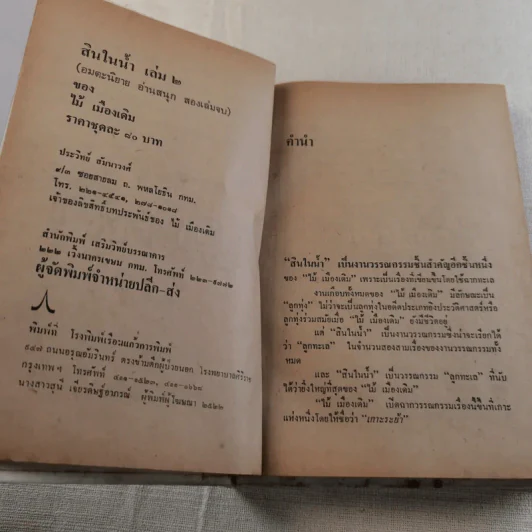 สินในน้ำ เล่ม ๒
(อมตะนิยาย อ่านสนุก สองเล่มจบ)
ของ
ไม้ เมืองเดิม
ราคาชุดละ ๘๐ บาท
ประวิทย์ สัมมาวงศ์
๙/๓ ซอยสายลม ถ. พหลโยธิน กทม.
โทร. ๒๗๘-๑๐๑๘
เจ้าของลิขสิทธิ์บทประพันธ์ของ ไม้ เมืองเดิม
สำนักพิมพ์ เสริมวิทย์บรรณาคาร
๒๒๒ เวิ้งนาครเขษม กทม. โทรศัพท์
ผู้จัดพิมพ์จำหน่ายปลีก-ส่ง
พิมพ์ที่ โรงพิมพ์เรือนแก้วการพิมพ์
๙๔๗ ถนนอรุณอัมรินทร์ ตรงข้ามตึกผู้ป่วยนอก โรงพยาบาลศิริราช
กรุงเทพฯ โทรศัพท์
ผู้พิมพ์ผู้โฆษณา ๒๕๒๒
คำนำ
"สินในน้ำ" เป็นงานวรรณกรรมชิ้นสำคัญอีกชิ้นหนึ่ง
ของ "ไม้ เมืองเดิม" เพราะเป็นเรื่องที่เขียนขึ้นโดยใช้ฉากทะเล
งานเกือบทั้งหมดของ "ไม้ เมืองเดิม" มีลักษณะเป็น
"ลูกทุ่ง" ไม่ว่าจะเป็นลูกทุ่งในอดีตประเภทอิงประวัติศาสตร์หรือ
ลูกทุ่งร่วมสมัยเมื่อ "ไม้ เมืองเดิม" ยังมีชีวิตอยู่
แต่ "สินในน้ำ" เป็นงานวรรณกรรมซึ่งน่าจะเรียกได้
ว่า "ลูกทะเล" ในจำนวนสองสามเรื่องของงานวรรณกรรมทั้ง
หมด
และ "สินในน้ำ" เป็นวรรณกรรม "ลูกทะเล" ที่นับ
ได้ว่ายิ่งใหญ่ที่สุดของ "ไม้ เมืองเดิม"
"ไม้ เมืองเดิม" เปิดฉากวรรณกรรมเรื่องนี้ขึ้นที่เกาะ
แห่งหนึ่งโดยให้ชื่อว่า "เกาะระย้า"